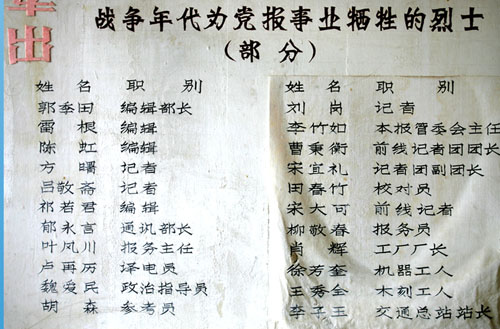 牵
出
战争年代为党报事业牺牲的烈士
（部分）
姓 名 职 别
郭季田 编辑部长
雷 根 编辑
陈 虹 编辑
方 曙 记者
吕敬斋 记者
祁若君 编辑
郁永言 通讯部长
叶凤川 报务主任
卢再厉 译电员
魏爱民 政治指导员
胡 森 参考员
姓 名 职 别
刘 岗 记者
李竹如 本报管委会主任
曹乘衡 前线记者团团长
宋宜礼 记者团副团长
田春竹 校对员
宋大可 前线记者
柳敬春 报务员
肖 辉 工厂厂长
徐芳奎 机器工人
王秀全 木刻工人
李子玉 交通总站站长